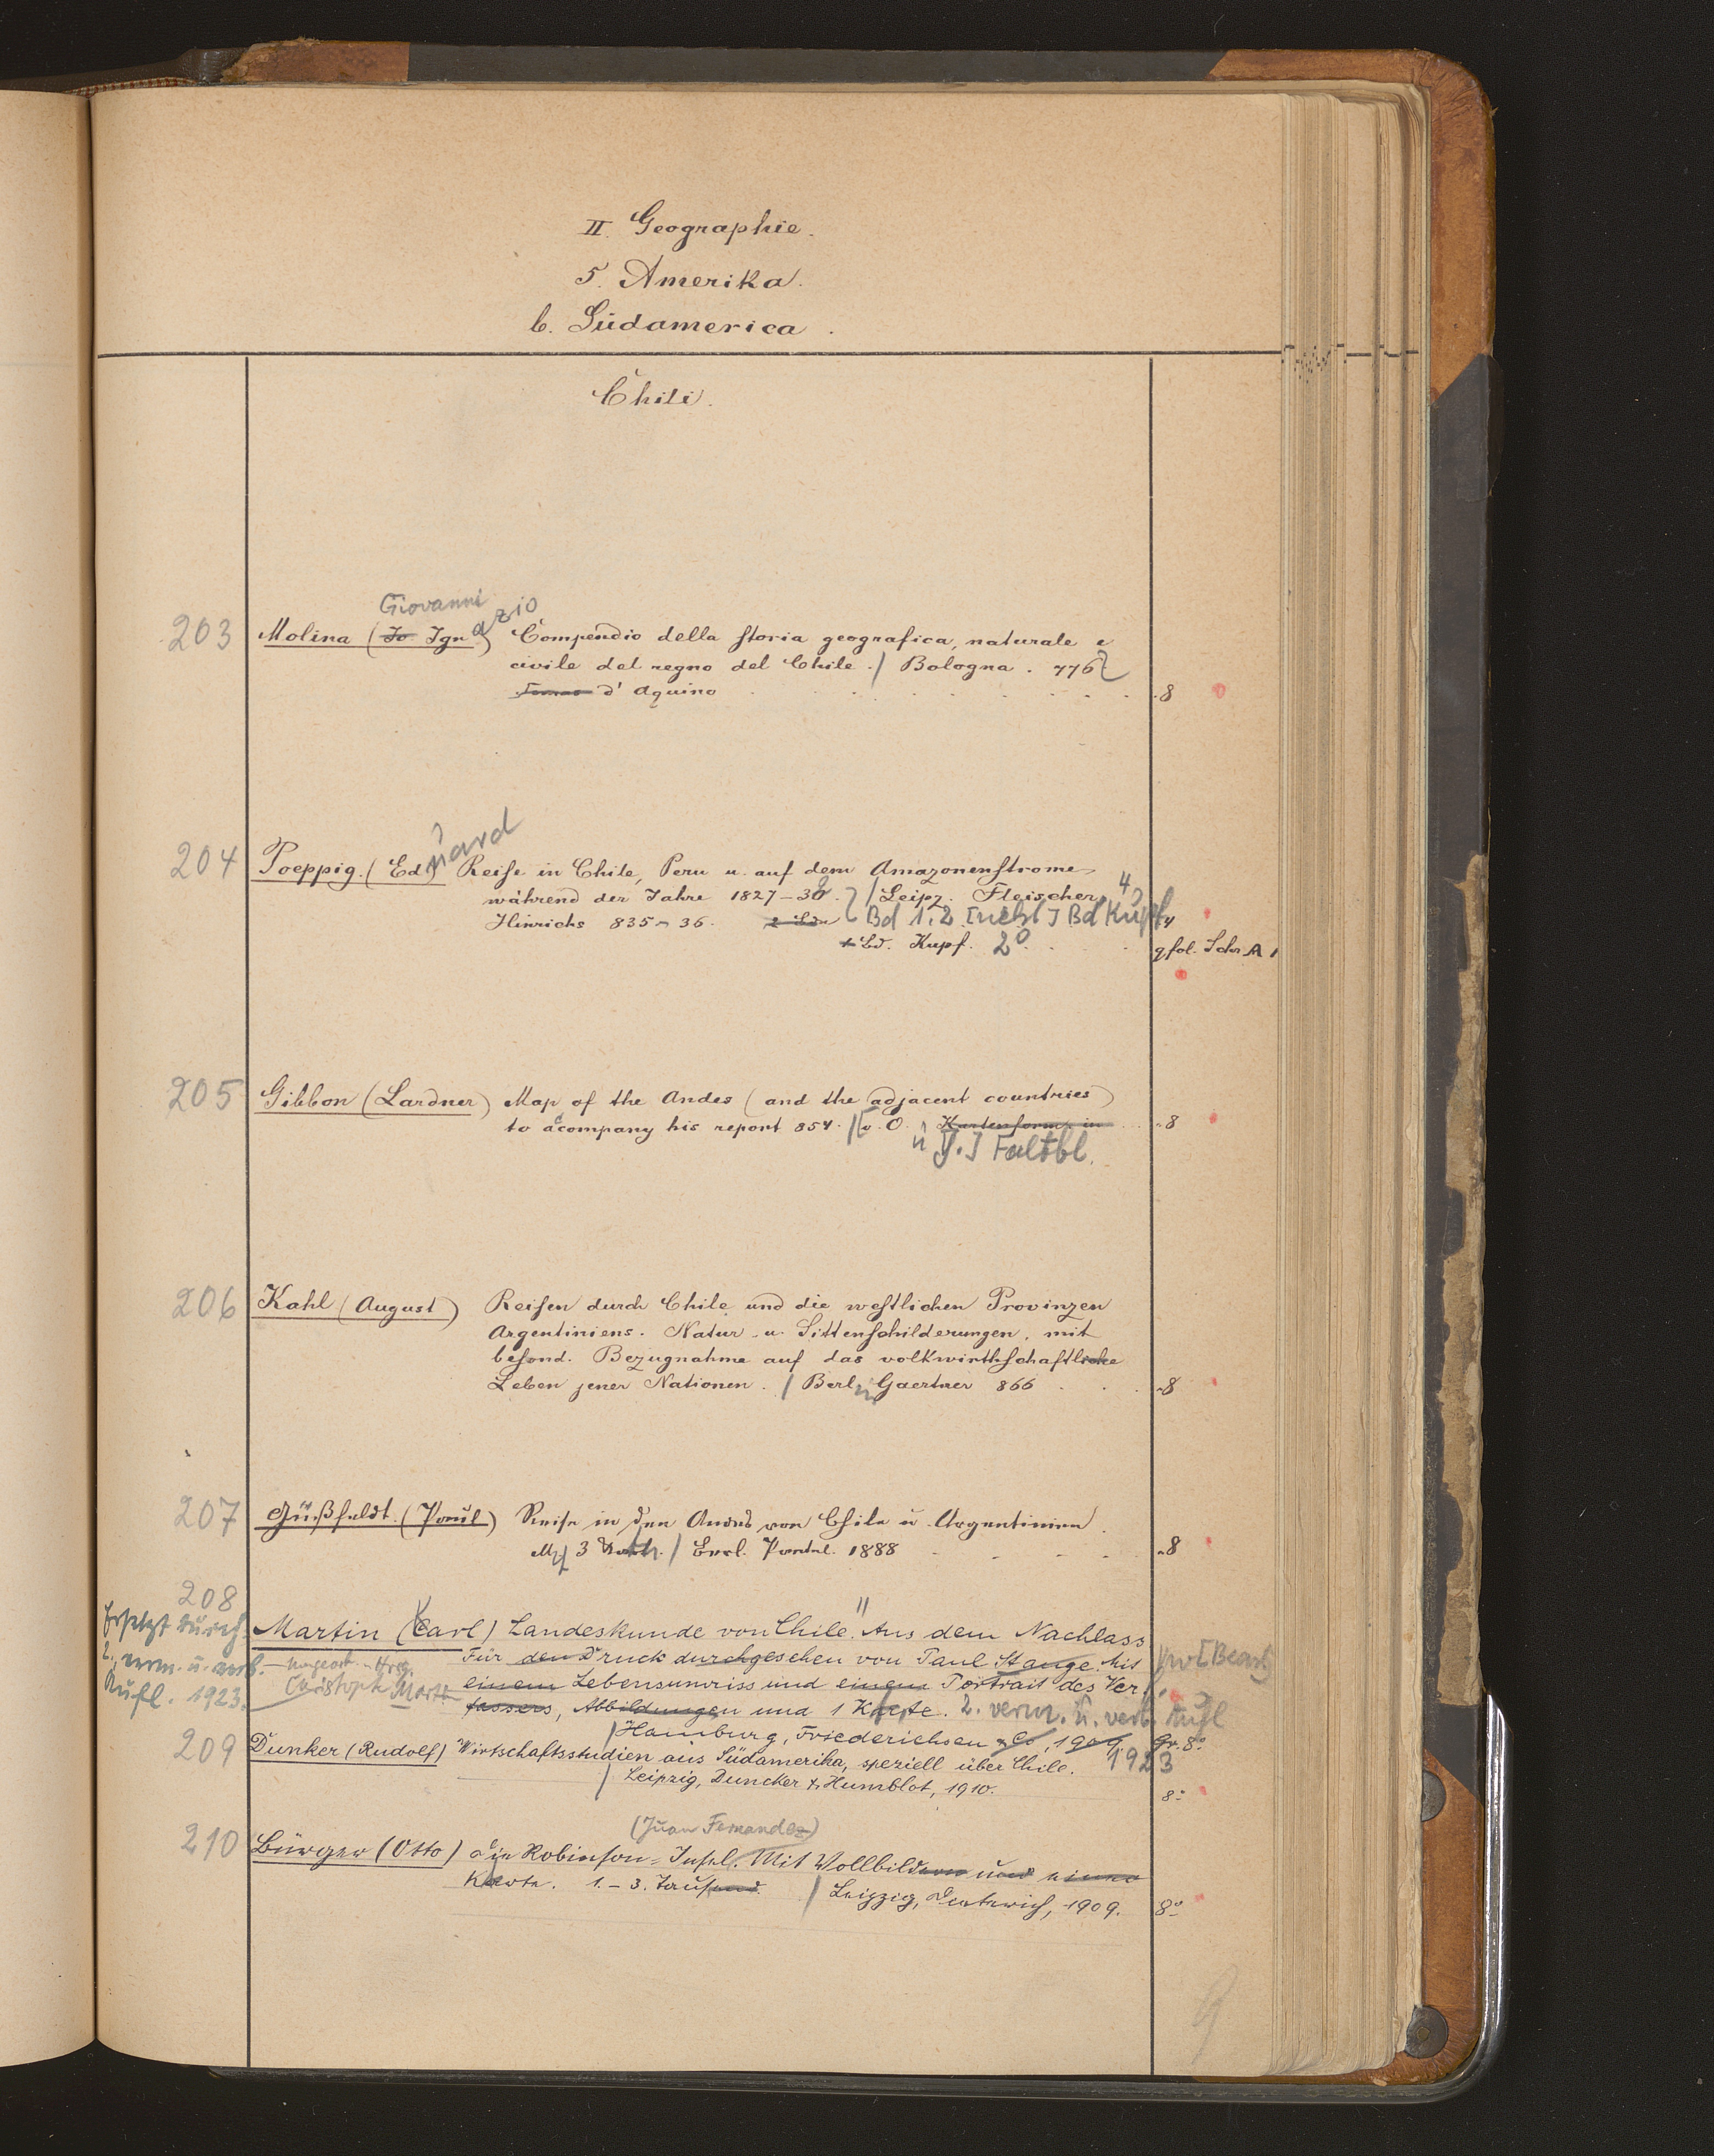 II. Geographie.
5. Amerika.
b. Südamerica.
Chili.
Giovanni azio
203 Molina (Jo Ign.) Compendio della storia geografica, naturale e
civile del regno del Chile. / Bologna. 776
Tomas d'Aquino 8
uard
204 Poeppig. (Ed.) Reise in Chile, Peru u. auf dem Amazonenstrome
während der Jahre 1827-32. / Leipz. Fleischer, 4
Hinrichs 835-36. 2 Bde Bd 1.2 [nebst] Bd Kupf. 4
1 Bd. Kupf. 2° qfol. Schr. A 1
205 Gibbon (Lardner) Map of the Andes (and the adjacent countries)
to accompany his report 854. / [o. O. Kartenformat in 8
u J.] Faltbl.
206 Kahl (August) Reisen durch Chile und die westlichen Provinzen
Argentiniens. Natur- u. Sittenschilderungen, mit
besond. Bezugnahme auf das volkwirthschaftliche
Leben jener Nationen. / Berlin Gaertner 866 8
207 Güßfeldt. (Paul) Reise in den Andes von Chile u Argentinien.
Mit 3 Kart. / Berl. Paetel. 1888 8
208
Ersetzt durch Martin (Carl) Landeskunde von Chile. Aus dem Nachlass
2., verm. u. verb. Für den Druck durchgesehen von Paul Stange. Mit [Bearb.
Aufl. 1923. Christoph Martin einem Lebensumriss und einem Portrait des Ver-
fassers, Abbildungen und 1 Karte. 2. verm. u. verb. Aufl
/ Hamburg, Friederichsen & Co, 1909. Gr. 8°
1923
209 Dunker (Rudolf) Wirtschaftsstudien aus Südamerika, speziell über Chile.
/ Leipzig, Duncker & Humblot, 1910. 8°
(Juan Fernandez)
210 Bürger (Otto) Die Robinson-Insel. Mit Vollbildern und einer
Karte. 1.-3. Tausend. / Leipzig, Dieterich, 1909. 8°